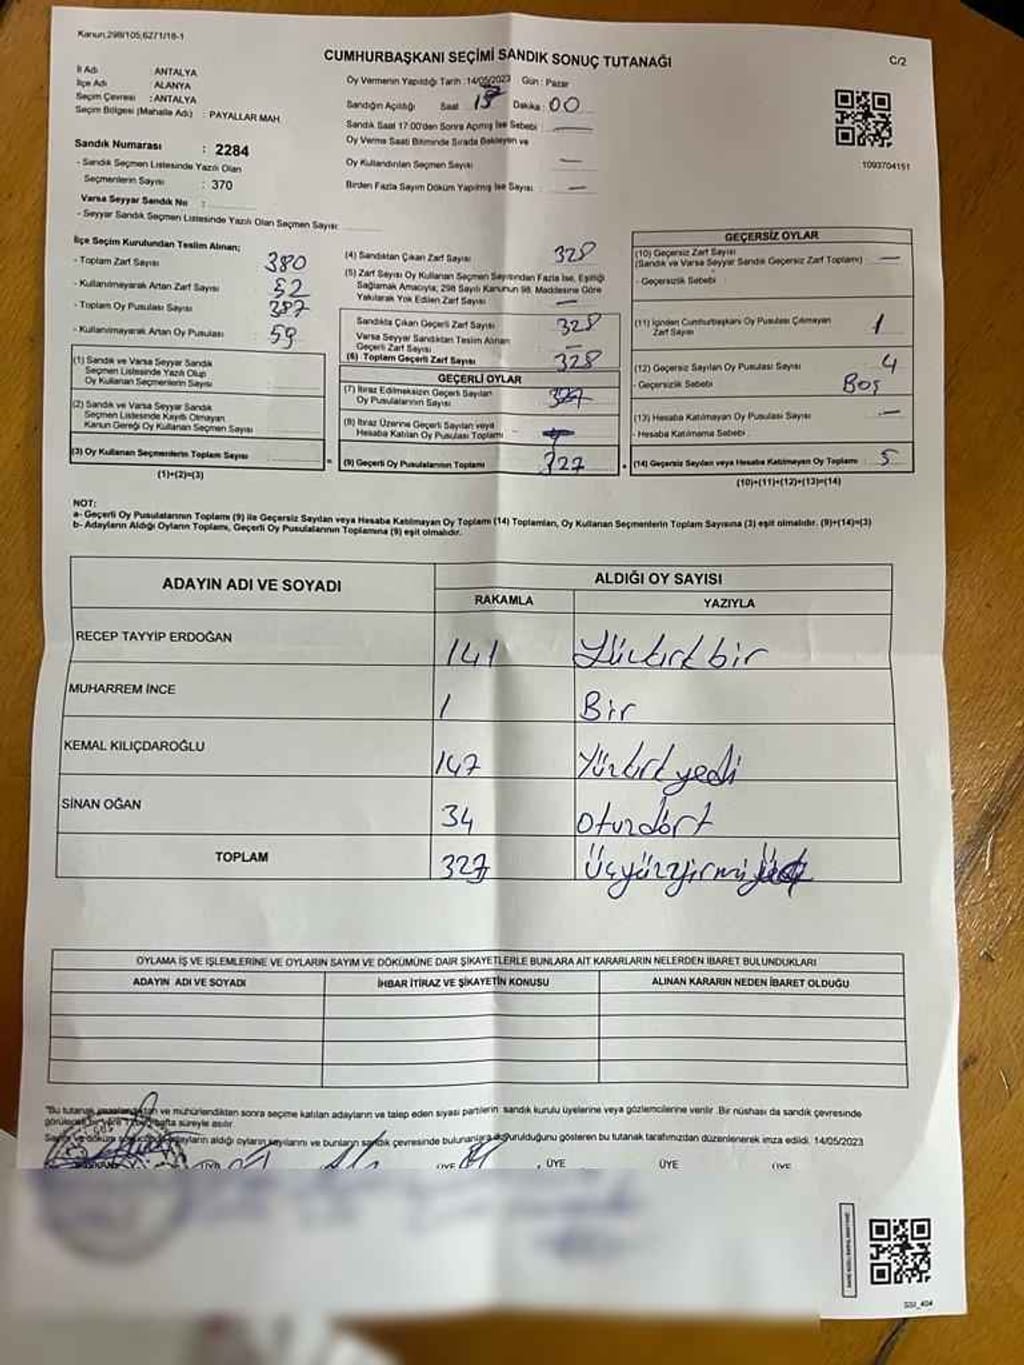 Kanun:298/105;6271/18-1
CUMHURBAŞKANI SEÇİMİ SANDIK SONUÇ TUTANAĞI
C/2
İl Adı : ANTALYA
İlçe Adı : ALANYA
Seçim Çevresi : ANTALYA
Seçim Bölgesi (Mahalle Adı) : PAYALLAR MAH
Sandık Numarası : 2284
- Sandık Seçmen Listesinde Yazılı Olan
Seçmenlerin Sayısı : 370
Varsa Seyyar Sandık No :
- Seyyar Sandık Seçmen Listesinde Yazılı Olan Seçmen Sayısı:
Oy Vermenin Yapıldığı Tarih :14/05/2023 Gün : Pazar
Sandığın Açıldığı Saat Dakika: 00
Sandık Saat 17:00'den Sonra Açmış İse Sebebi : —
Oy Verme Saati Bitiminde Sırada Bekleyen ve
Oy Kullandırılan Seçmen Sayısı —
Birden Fazla Sayım Döküm Yapılmış İse Sayısı : —
1093704151
İlçe Seçim Kurulundan Teslim Alınan;
- Toplam Zarf Sayısı 380
- Kullanılmayarak Artan Zarf Sayısı 52
- Toplam Oy Pusulası Sayısı 387
- Kullanılmayarak Artan Oy Pusulası 59
(1) Sandık ve Varsa Seyyar Sandık
Seçmen Listesinde Yazılı Olup
Oy Kullanan Seçmenlerin Sayısı
(2) Sandık ve Varsa Seyyar Sandık
Seçmen Listesinde Kayıtlı Olmayan
Kanun Gereği Oy Kullanan Seçmen Sayısı
(3) Oy Kullanan Seçmenlerin Toplam Sayısı
(1)+(2)=(3)
(4) Sandıktan Çıkan Zarf Sayısı 328
(5) Zarf Sayısı Oy Kullanan Seçmen Sayısından Fazla İse, Eşitliği
Sağlamak Amacıyla; 298 Sayılı Kanunun 98. Maddesine Göre
Yakılarak Yok Edilen Zarf Sayısı —
Sandıkta Çıkan Geçerli Zarf Sayısı 328
Varsa Seyyar Sandıktan Teslim Alınan
Geçerli Zarf Sayısı —
(6) Toplam Geçerli Zarf Sayısı 328
GEÇERLİ OYLAR
(7) İtiraz Edilmeksizin Geçerli Sayılan
Oy Pusulalarının Sayısı 327
(8) İtiraz Üzerine Geçerli Sayılan veya
Hesaba Katılan Oy Pusulası Toplamı
(9) Geçerli Oy Pusulalarının Toplamı 327
GEÇERSİZ OYLAR
(10) Geçersiz Zarf Sayısı
(Sandık ve Varsa Seyyar Sandık Geçersiz Zarf Toplamı) —
- Geçersizlik Sebebi :
(11) İçinden Cumhurbaşkanı Oy Pusulası Çıkmayan
Zarf Sayısı 1
(12) Geçersiz Sayılan Oy Pusulası Sayısı 4
- Geçersizlik Sebebi Boş
(13) Hesaba Katılmayan Oy Pusulası Sayısı —
- Hesaba Katılmama Sebebi
(14) Geçersiz Sayılan veya Hesaba Katılmayan Oy Toplamı 5
(10)+(11)+(12)+(13)=(14)
NOT:
a- Geçerli Oy Pusulalarının Toplamı (9) ile Geçersiz Sayılan veya Hesaba Katılmayan Oy Toplamı (14) Toplamları, Oy Kullanan Seçmenlerin Toplam Sayısına (3) eşit olmalıdır. (9)+(14)=(3)
b- Adayların Aldığı Oyların Toplamı, Geçerli Oy Pusulalarının Toplamına (9) eşit olmalıdır.
ADAYIN ADI VE SOYADI
ALDIĞI OY SAYISI
RAKAMLA YAZIYLA
RECEP TAYYİP ERDOĞAN 141 Yüzkırkbir
MUHARREM İNCE 1 Bir
KEMAL KILIÇDAROĞLU 147 Yüzkırkyedi
SİNAN OĞAN 34 Otuzdört
TOPLAM 327 Üçyüzyirmiyedi
OYLAMA İŞ VE İŞLEMLERİNE VE OYLARIN SAYIM VE DÖKÜMÜNE DAİR ŞİKAYETLERLE BUNLARA AİT KARARLARIN NELERDEN İBARET BULUNDUKLARI
ADAYIN ADI VE SOYADI İHBAR İTİRAZ VE ŞİKAYETİN KONUSU ALINAN KARARIN NEDEN İBARET OLDUĞU
"Bu tutanak ve mühürlendikten sonra seçime katılan adayların ve talep eden siyasi partilerin sandık kurulu üyelerine veya gözlemcilerine verilir .Bir nüshası da sandık çevresinde
görülecek bir yere hafta süreyle asılır.
Sayım ve döküm adayların aldığı oyların sayılarını ve bunların sandık çevresinde bulunanlara duyurulduğunu gösteren bu tutanak tarafımızdan düzenlenerek imza edildi. 14/05/2023
ÜYE ÜYE ÜYE ÜYE ÜYE